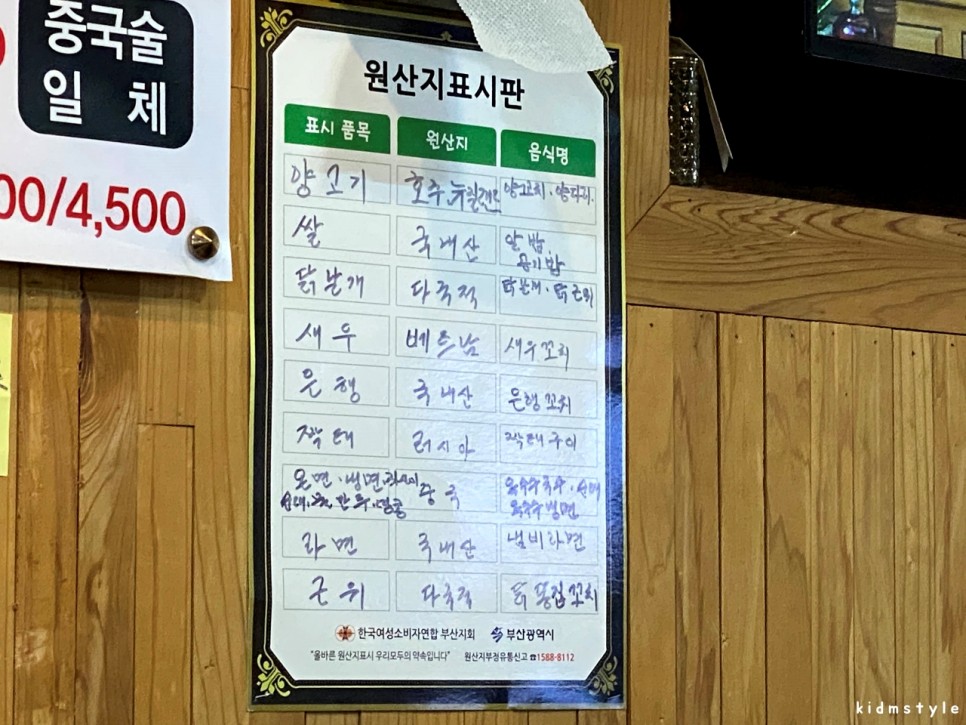 중국술
일 체
00/4,500
원산지표시판
표시 품목 원산지 음식명
양고기 호주, 뉴질랜드 양꼬치 · 양다리
쌀 국내산 알밥,
공기밥
닭날개 다국적 닭날개 · 닭근위
새우 베트남 새우꼬치
은행 국내산 은행꼬치
짝태 러시아 짝태구이
온면 · 냉면, 중국 옥수수국수 · 순대
순대, 만두, 땅콩 옥수수냉면
라면 국내산 냄비라면
근위 다국적 닭똥집꼬치
한국여성소비자연합 부산지회 부산광역시
"올바른 원산지표시 우리모두의 약속입니다" 원산지부정유통신고 ☎1588-8112
kidmstyle